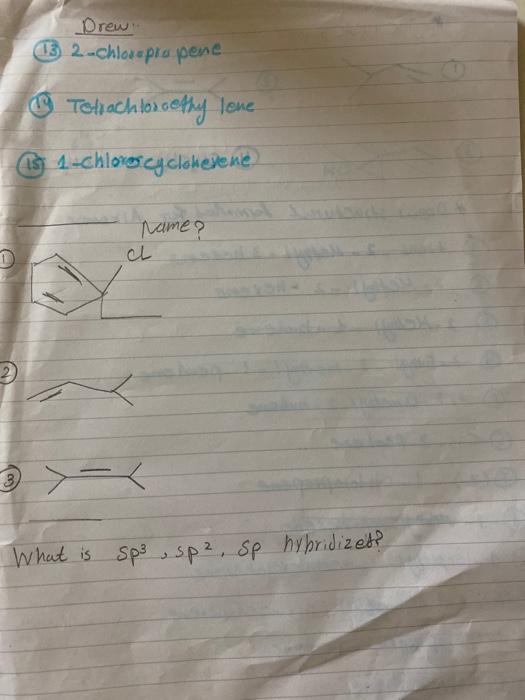 Drew
13 2-chloropropene
14 Tetrachloroethylene
15 1-chlorocyclohexene
Name?
1
CL
2
3
What is sp³, sp², sp hybridized?